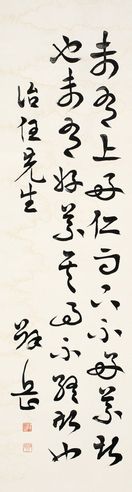 未有上好仁而下不好義者
也未有好義其事不終者也
治任先生
薛岳